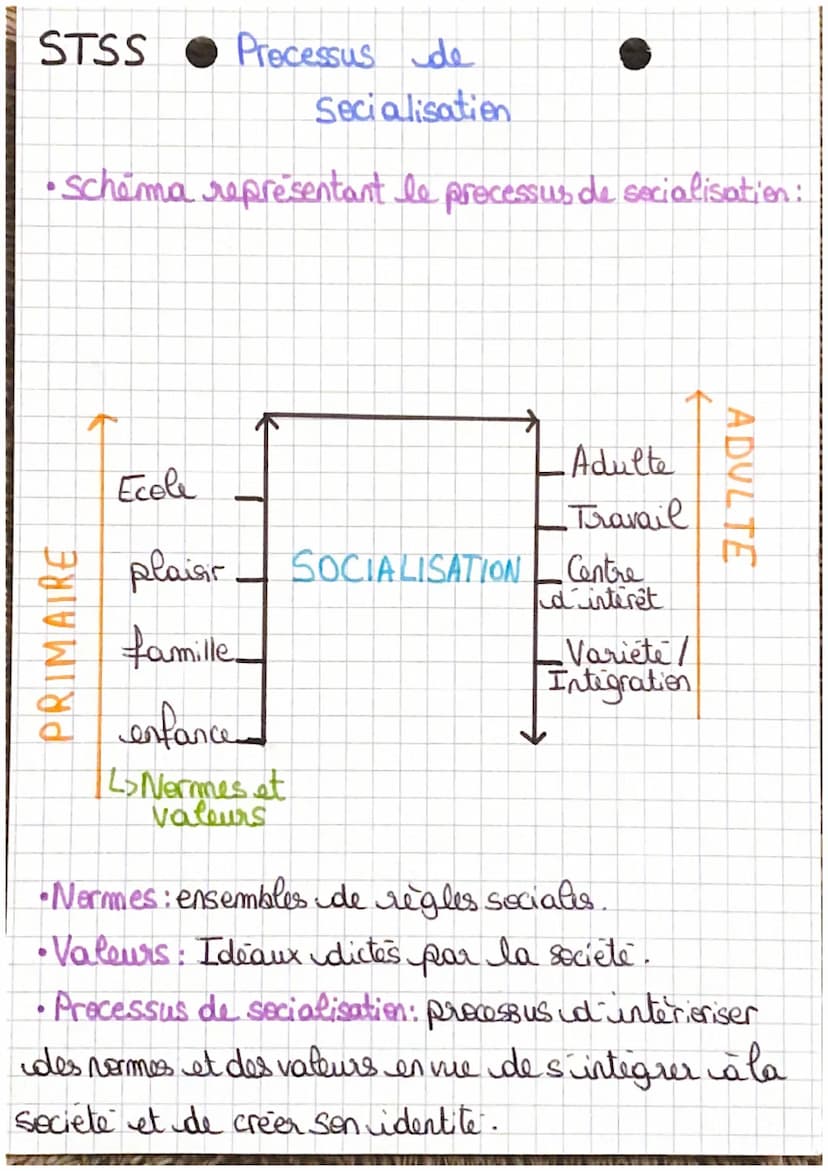 STSS • Processus de
socialisation
• schéma représentant le processus de socialisation :
PRIMAIRE
Ecole
plaisir
famille
enfance
↳ Normes et
valeurs
SOCIALISATION
Adulte
Travail
Centre
d'intérêt
Variété /
Intégration
ADULTE
• Normes : ensembles de règles sociales.
• Valeurs : Idéaux dictés par la société.
• Processus de socialisation : processus d'intérioriser
des normes et des valeurs en vue de s'intégrer à la
société et de créer son identité.